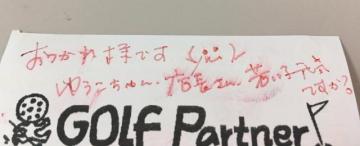 おつかれ様です (¨)
ゆうこちゃん・店長さん 若い子元気
ですか?
GOLF Partner